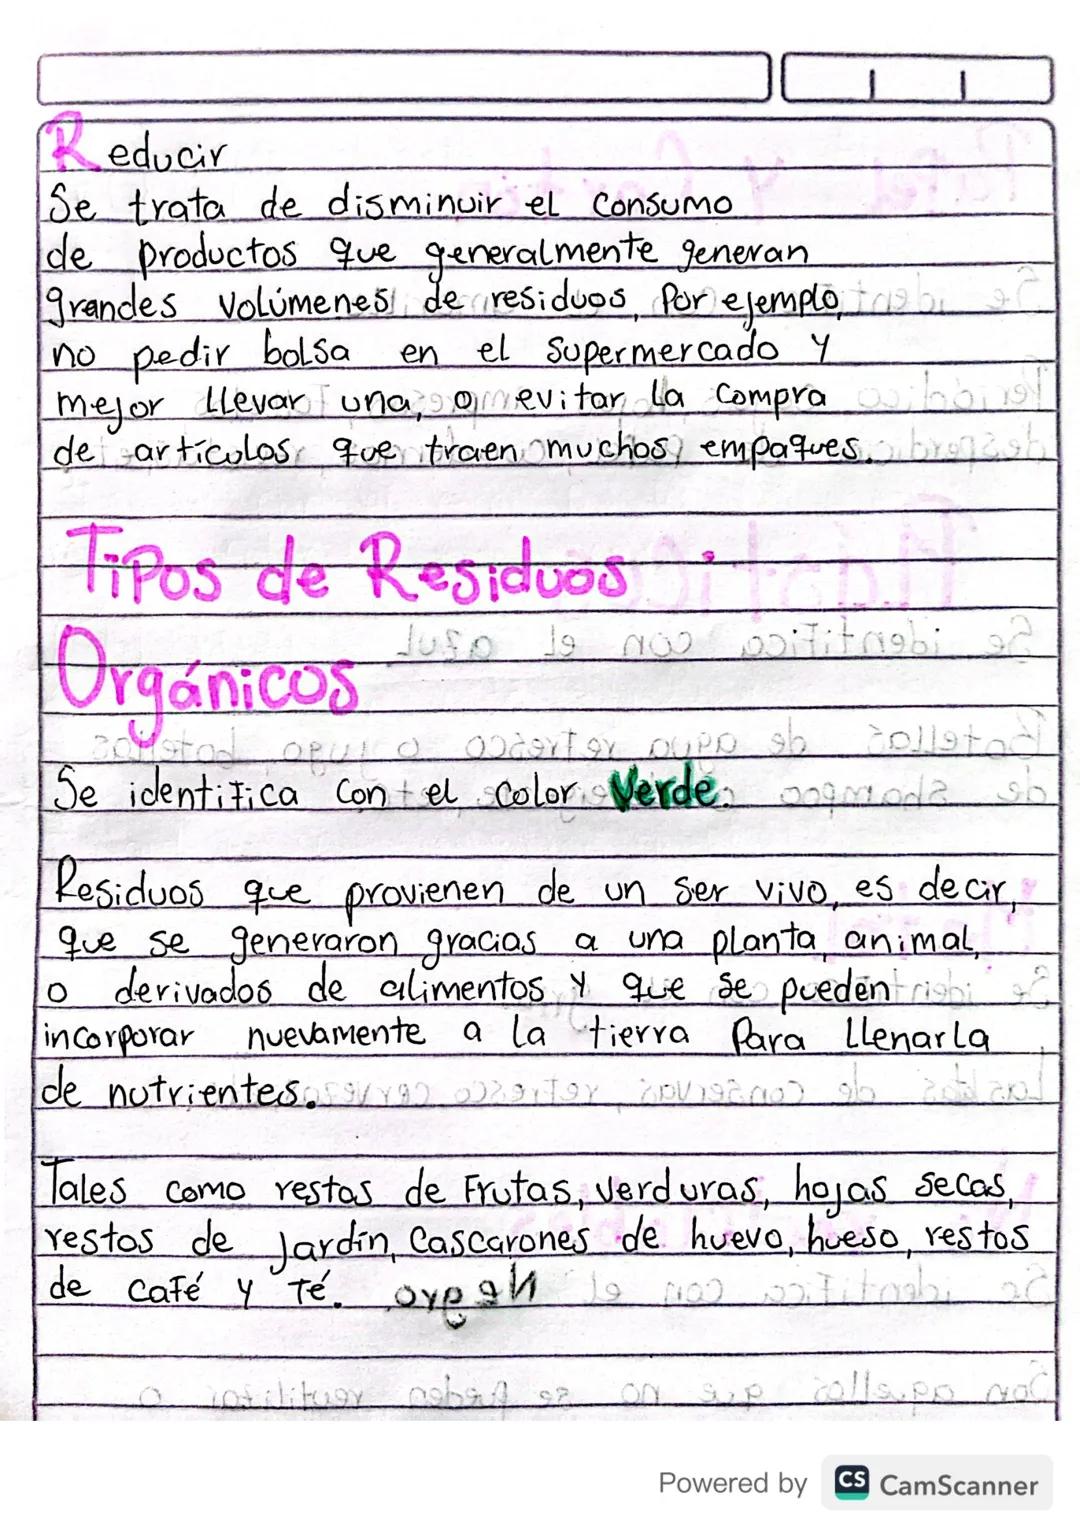 Reducir
Se trata de disminuir el consumo
de productos que generalmente generan
grandes volúmenes de residuos, Por ejemplo,
no pedir bolsa en el supermercado y
mejor llevar una, o evitar la compra
de artículos que traen muchos empaques.
Tipos de Residuos
Orgánicos
Se identifica con el color Verde.
Residuos que provienen de un ser vivo, es decir,
que se generaron gracias a una planta, animal,
o derivados de alimentos y que se pueden
incorporar nuevamente a la tierra Para llenarla
de nutrientes.
Tales como restos de Frutas, verduras, hojas secas,
restos de Jardín, Cascarones de huevo, hueso, restos
de café y té.
Powered by CS CamScanner